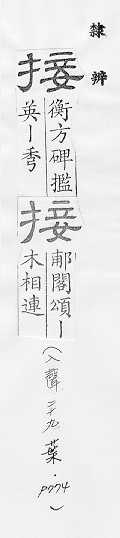 隸辨
接衡方碑㩜
英ー秀
接郙閣頌ー
木相連
(入聲二十九葉·P774)